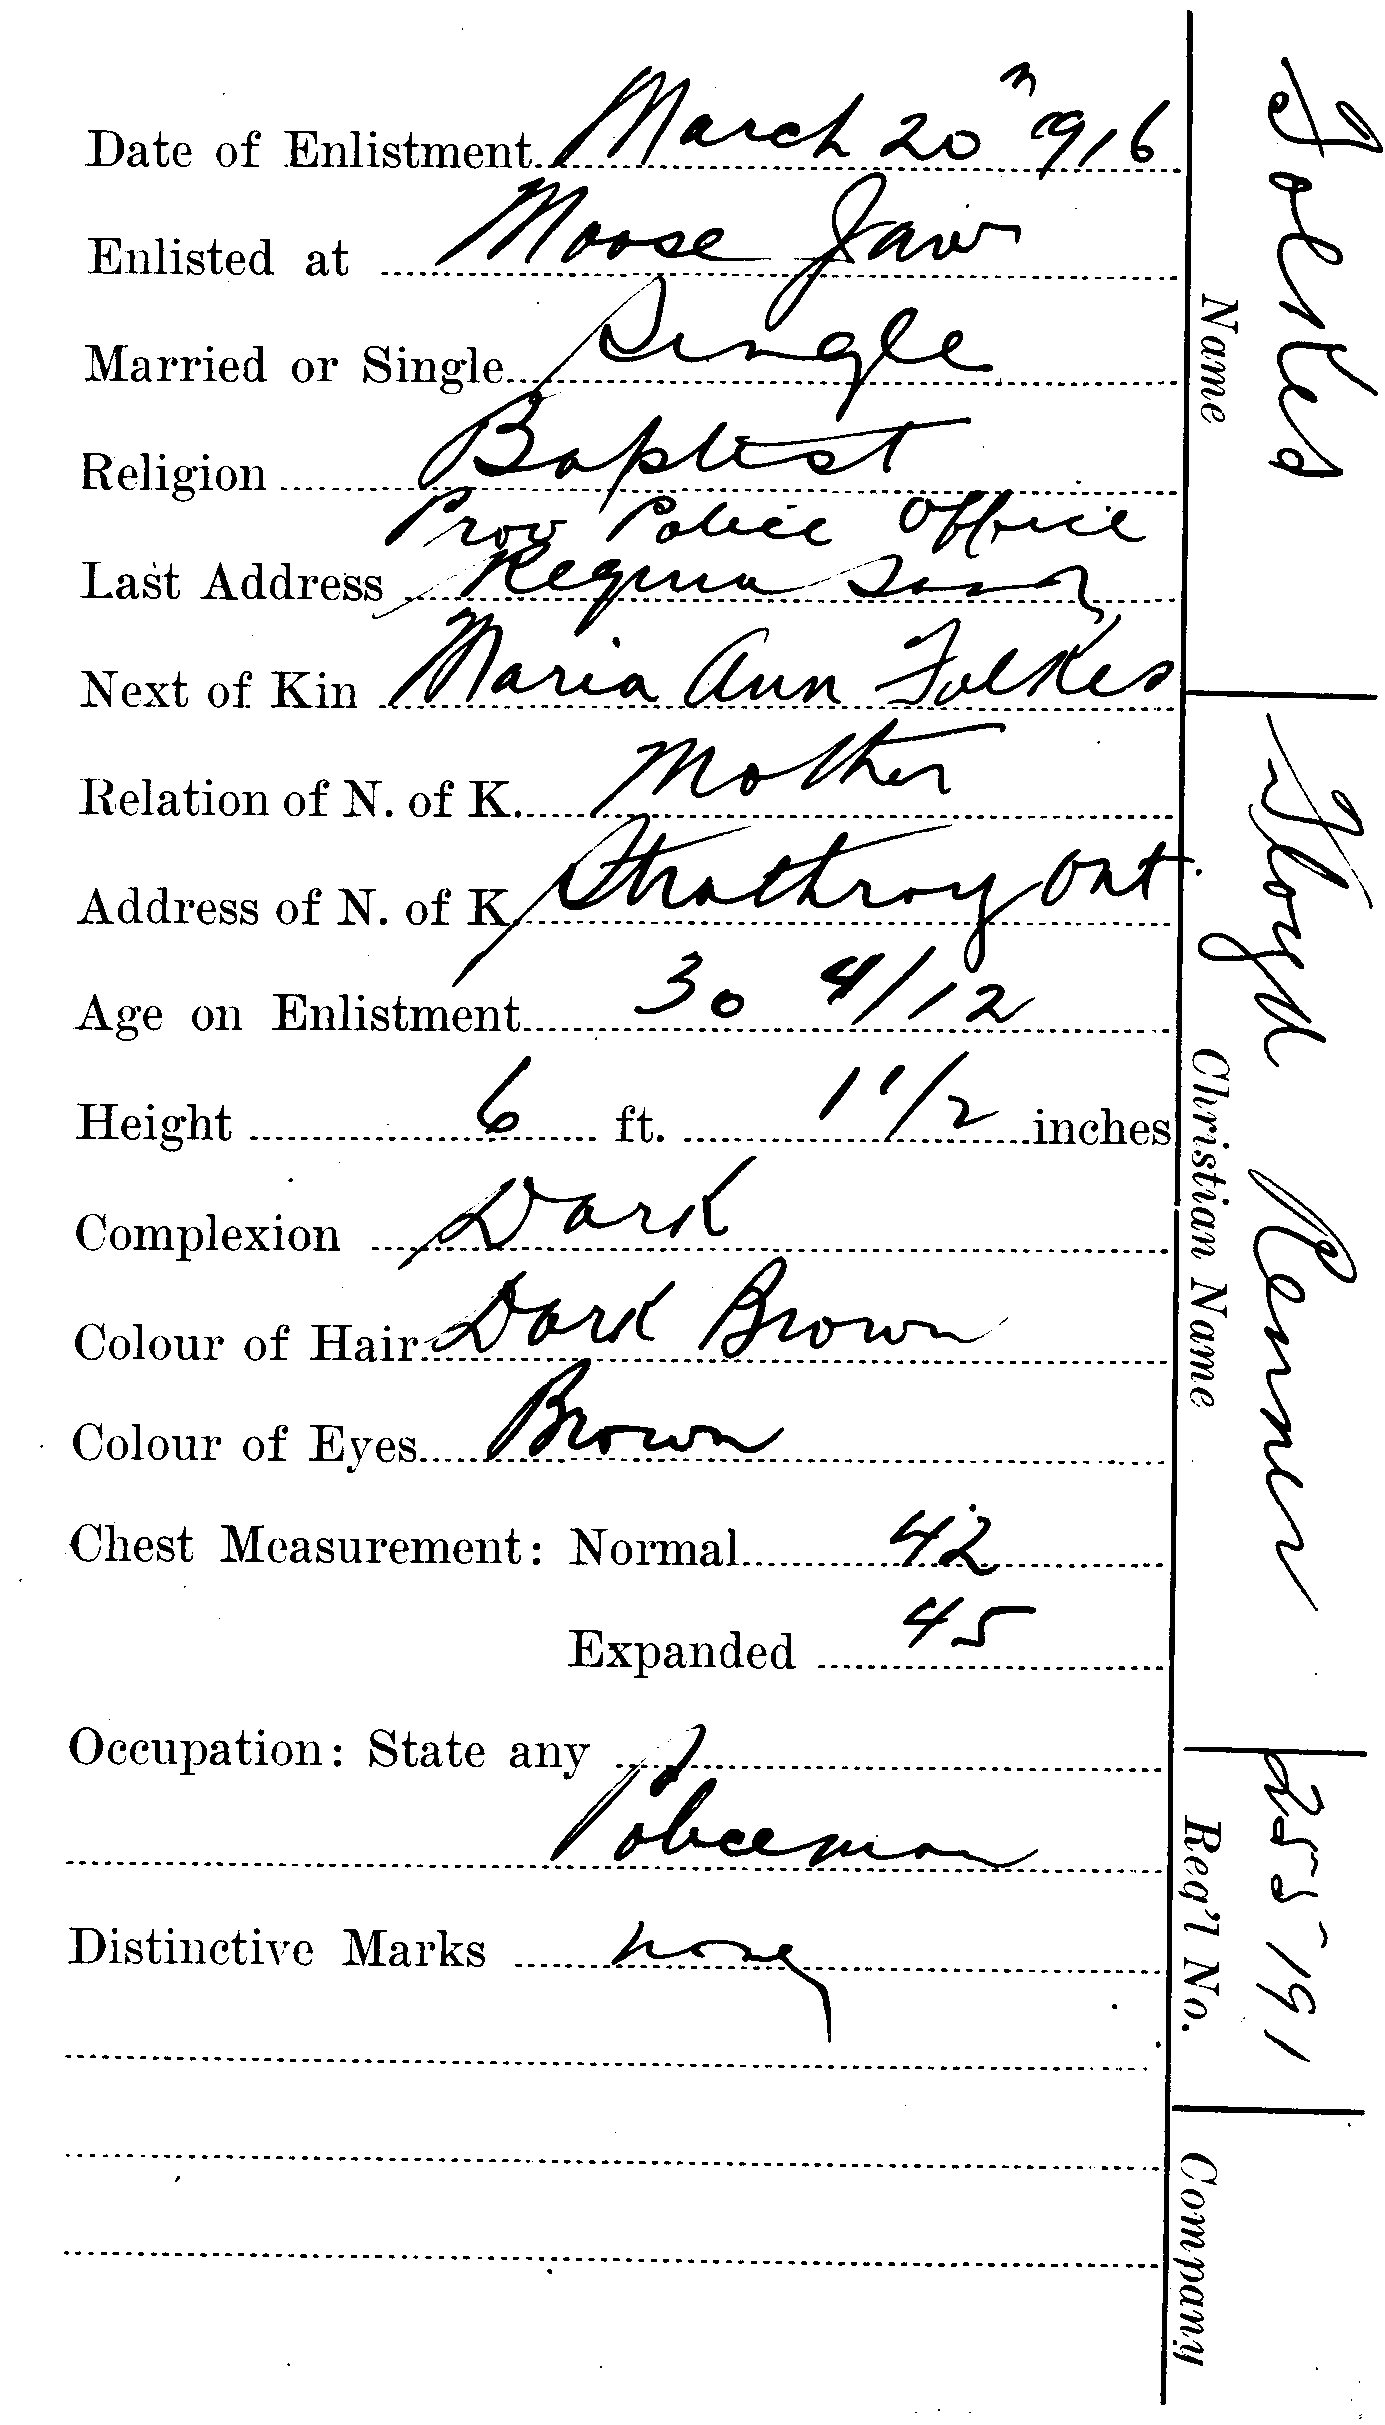 Date of Enlistment March 20th 1916
Enlisted at Moose Jaw
Married or Single Single
Religion Baptist
Prov Police Office
Last Address Regina Sask
Next of Kin Maria Ann Folkes
Relation of N. of K. Mother
Address of N. of K. Strathroy Ont.
Age on Enlistment 30 4/12
Height 6 ft. 1 1/2 inches
Complexion Dark
Colour of Hair Dark Brown
Colour of Eyes Brown
Chest Measurement: Normal 42
Expanded 45
Occupation: State any
Policeman
Distinctive Marks none
Folkes Floyd Renner 255191
Name Christian Name Reg'l No. Company